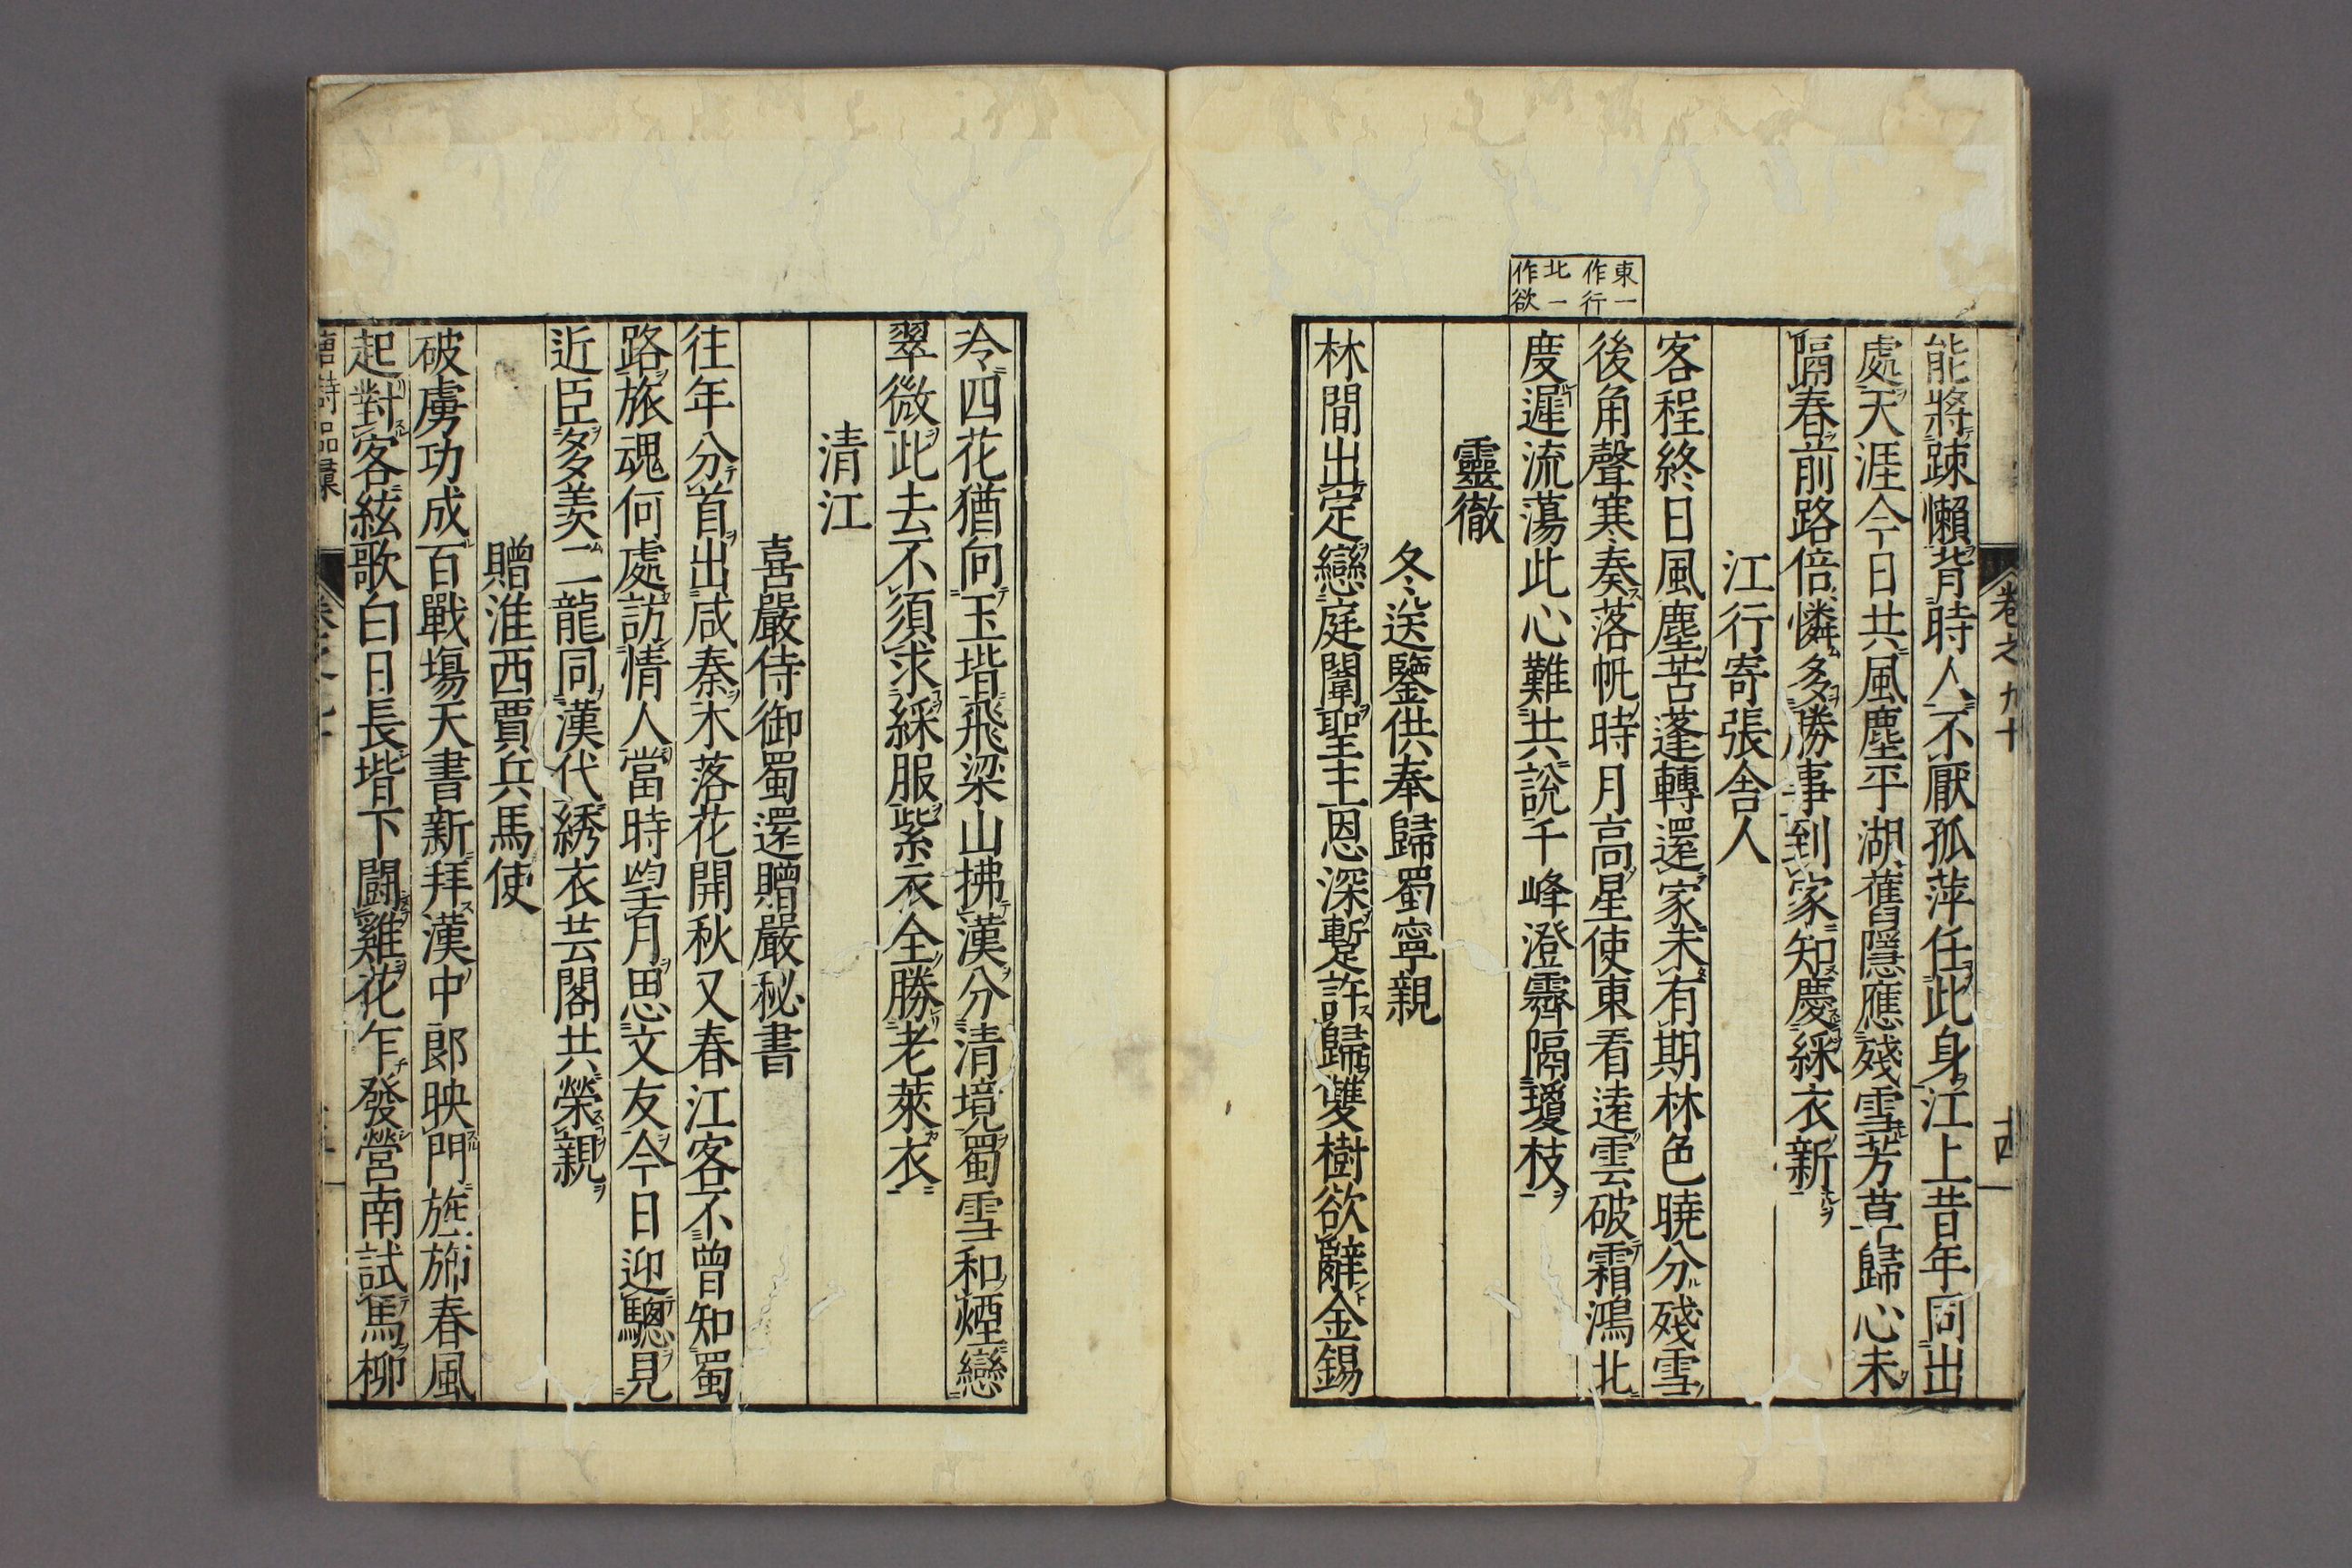 東一
作行
北一
作欲
能將疎懶背時人不厭孤萍任此身江上昔年同出
處天涯今日共風塵平湖舊隱應殘雪芳草歸心未
隔春前路倍憐多勝事到家知慶綵衣新
江行寄張舍人
客程終日風塵苦蓬轉還家未有期林色曉分殘雪
後角聲寒奏落帆時月高星使東看遠雲破霜鴻北
度遲流蕩此心難共說千峰澄霽隔瓊枝
靈徹
冬送鑒供奉歸蜀寧親
林間出定戀庭闈聖主恩深蹔許歸雙樹欲辭金錫
卷之九十
冷四花猶向玉堦飛梁山拂漢分清境蜀雪和煙戀
翠微此去不須求綵服紫衣全勝老萊衣
清江
喜嚴侍御蜀還贈嚴秘書
往年分首出咸秦木落花開秋又春江客不曾知蜀
路旅魂何處訪情人當時望月思文友今日迎驄見
近臣多羨二龍同漢代綉衣芸閣共榮親
贈淮西賈兵馬使
破虜功成百戰塲天書新拜漢中郎映門旌旆春風
起對客絃歌白日長堦下鬪雞花乍發營南試馬柳
唐詩品彙